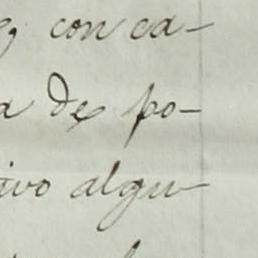 con ca-
a de po-
ivo algu-